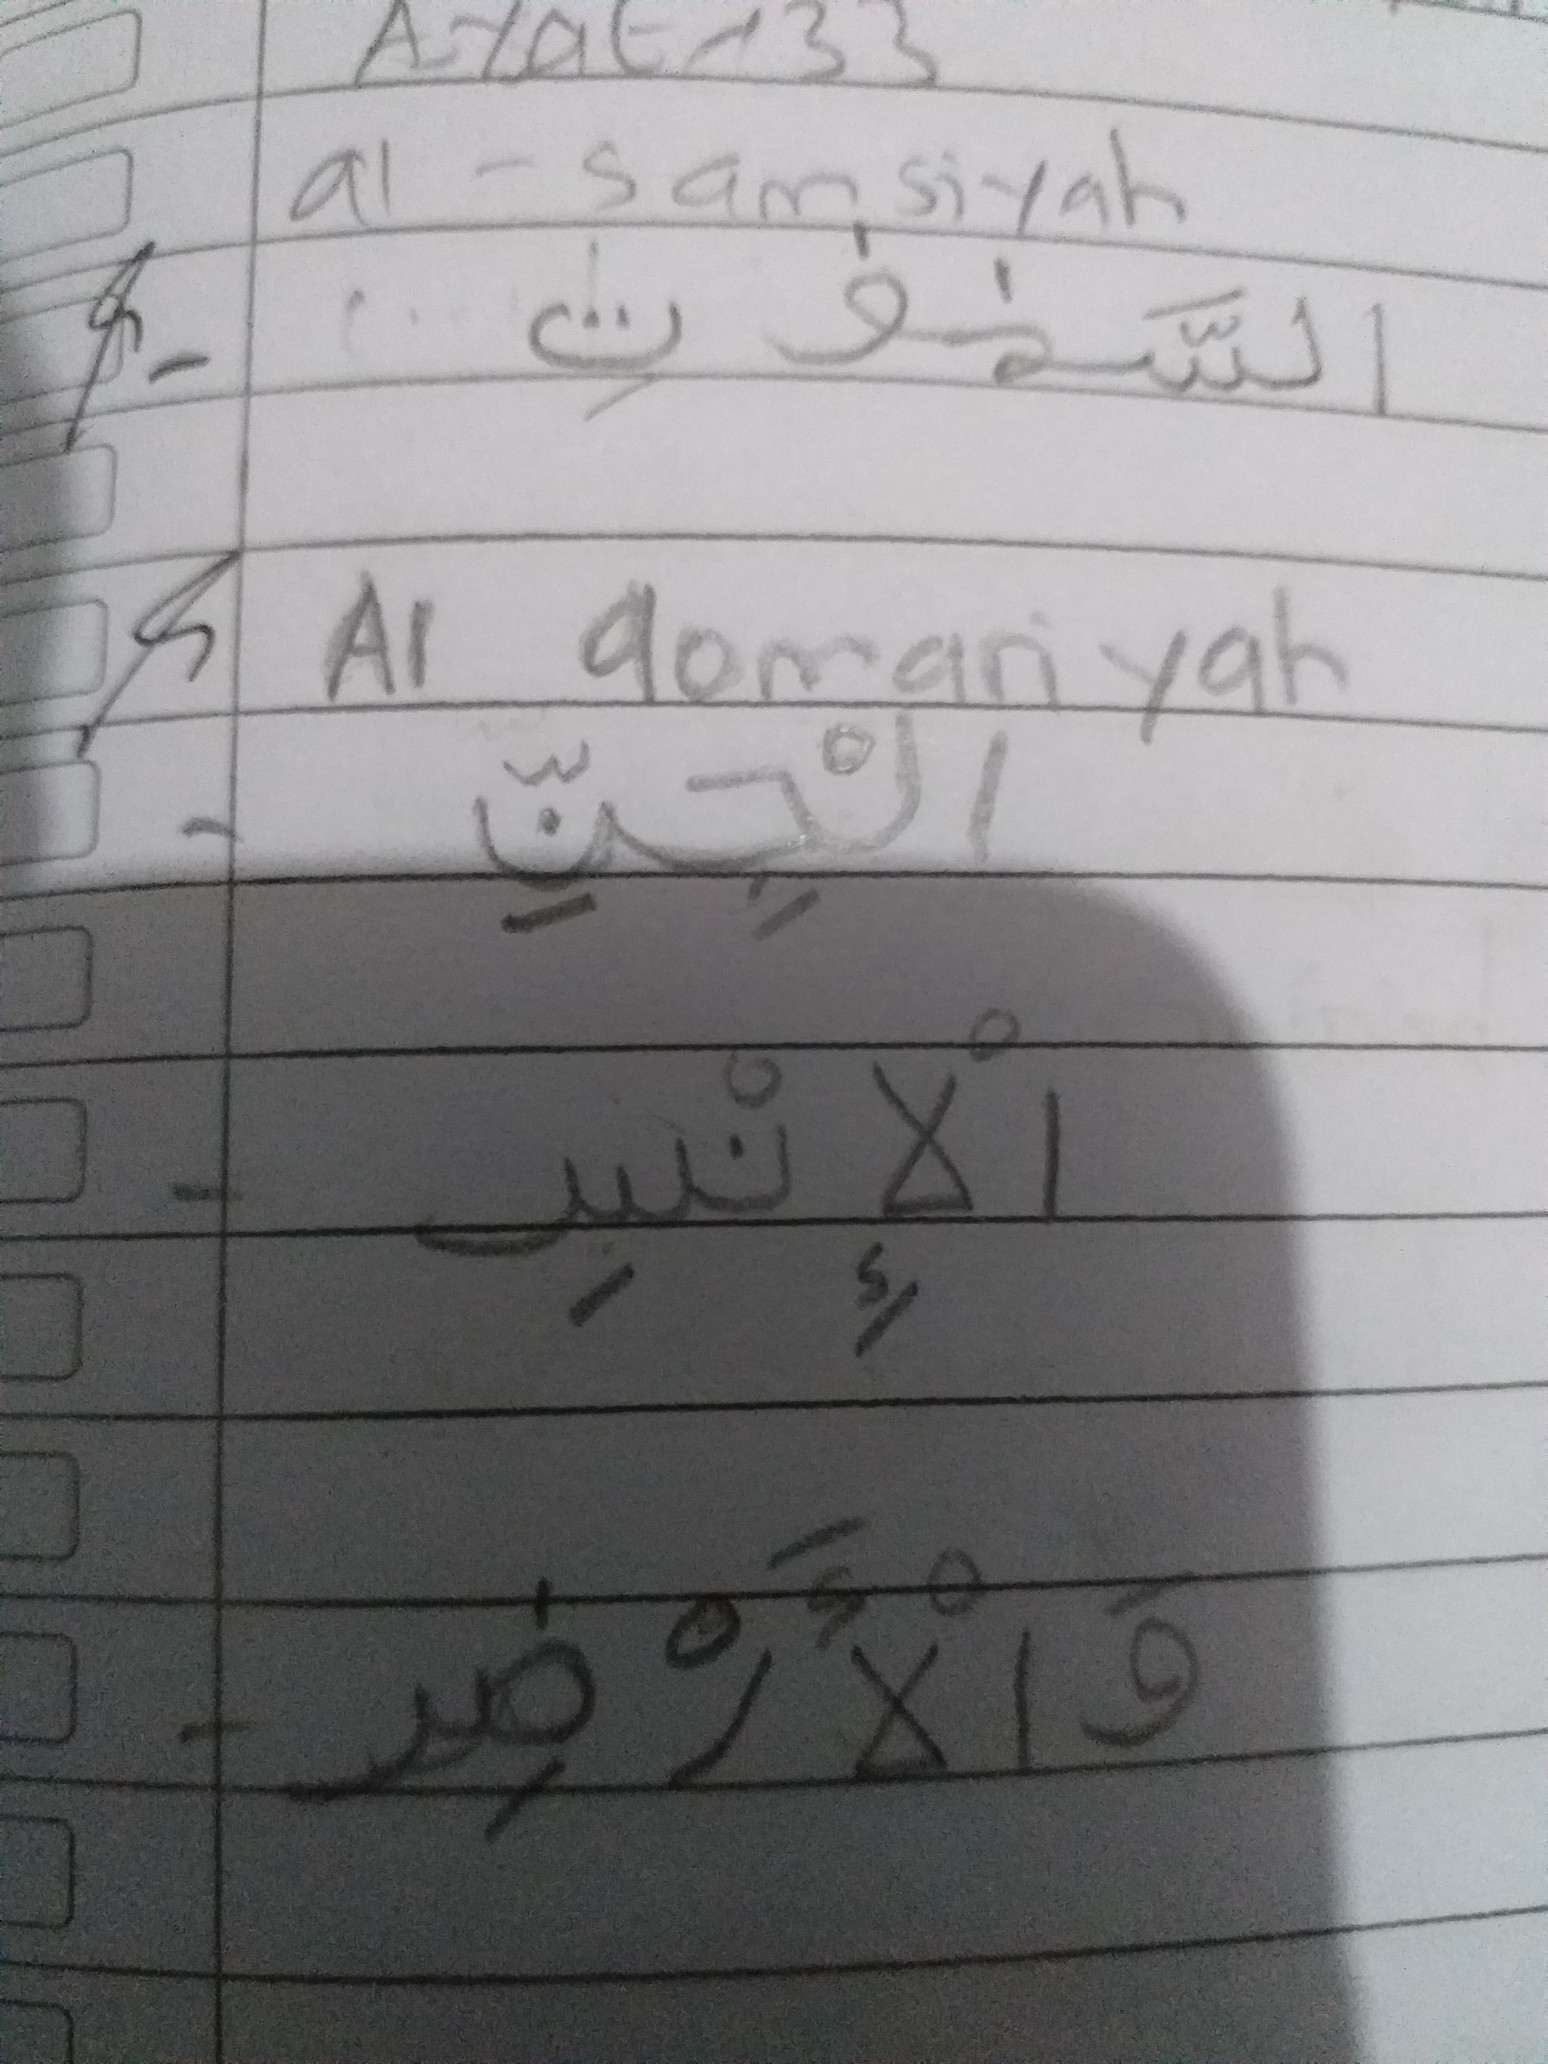 Ayat 133
al - samsiyah
- السَّمٰوٰتِ
Al qomariyah
- الْجِنِّ
- الْاِنْسِ
- وَالْاَرْضِ